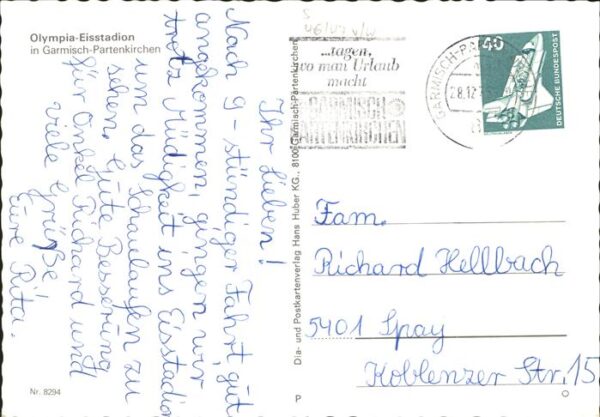 Olympia-Eisstadion
in Garmisch-Partenkirchen
Ihr Lieben!
Nach 9-stündiger Fahrt, gut
angekommen, gingen wir
trotz Müdigkeit ins Eisstadion
um das Schaulaufen zu
sehen. Gute Besserung
für Onkel Richard und
viele Grüße
Eure Rita.
Nr. 8294
Dia- und Postkartenverlag Hans Huber KG., 8100 Garmisch-Partenkirchen
P
...tagen,
wo man Urlaub
macht
GARMISCH
PARTENKIRCHEN
GARMISCH-PA
28.12.
40
DEUTSCHE BUNDESPOST
Fam.
Richard Hellbach
5401 Spay
Koblenzer Str. 15